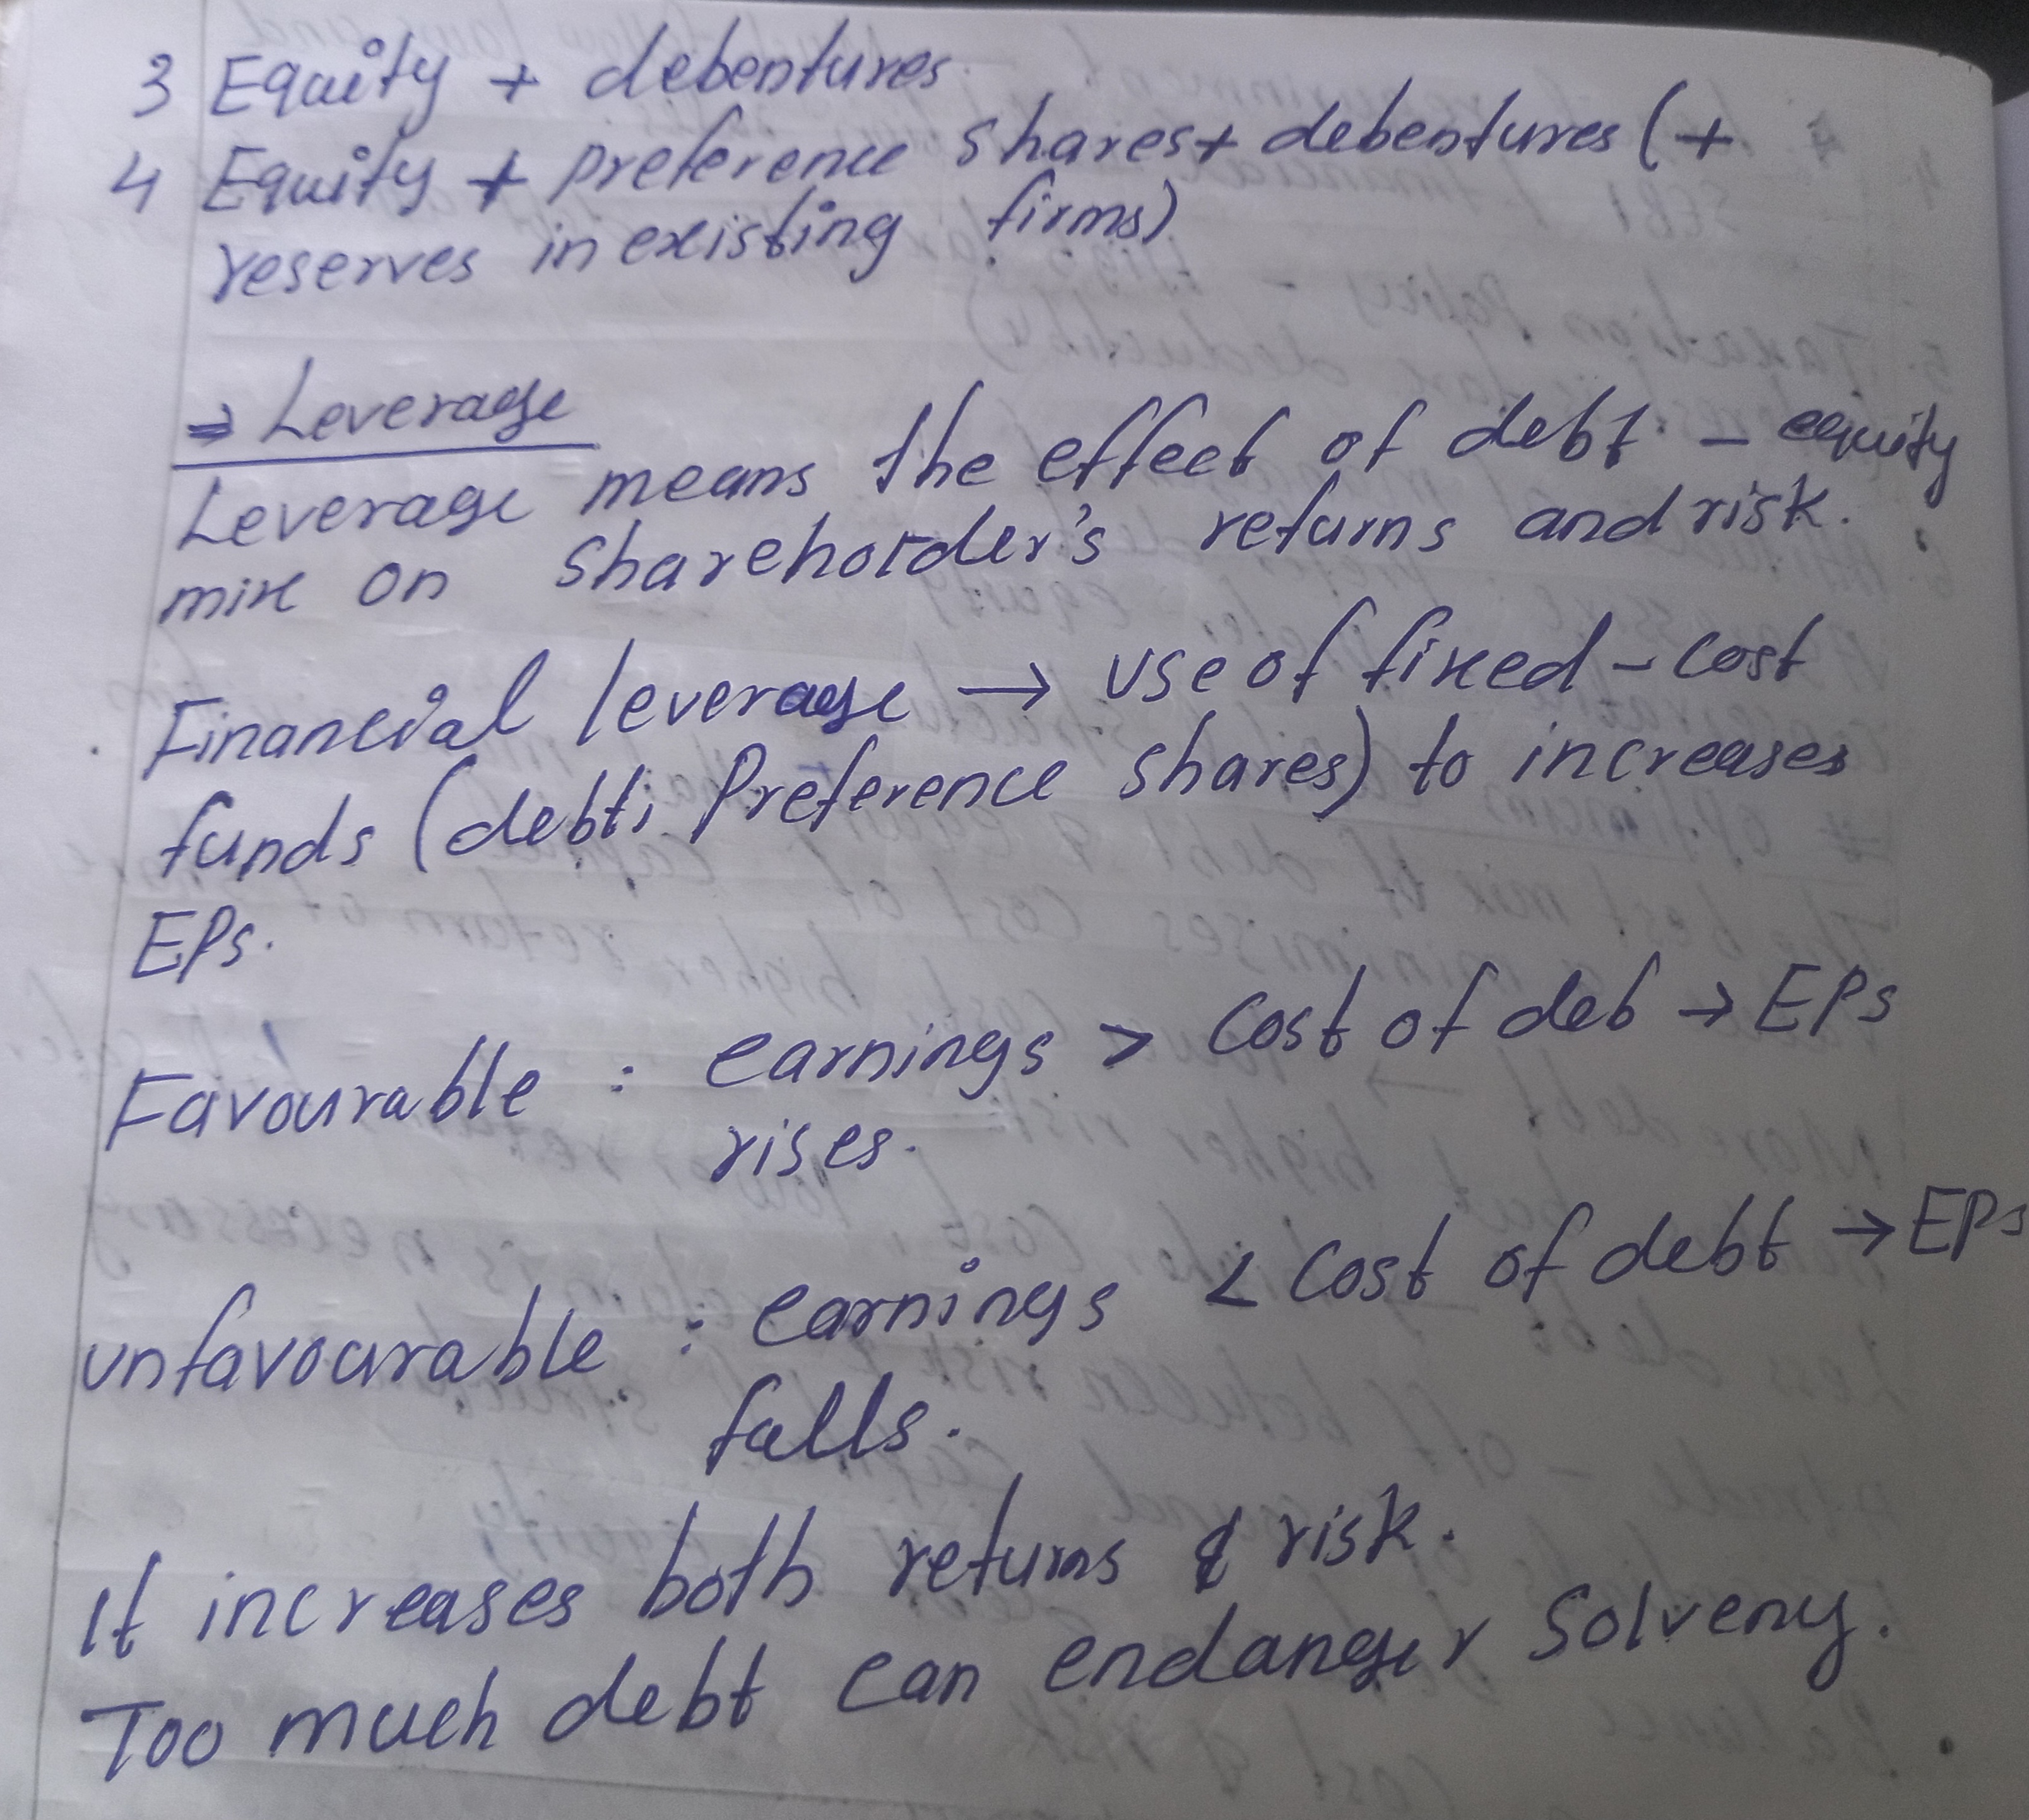 3 Equity + debentures
4 Equity + preference shares + debentures (+
reserves in existing firms)
⇒ Leverage
Leverage means the effect of debt - equity
mix on shareholder's returns and risk.
Financial leverage → use of fixed - cost
funds (debt, Preference shares) to increases
EPs.
Favourable : earnings > cost of deb → EPs
rises.
unfavourable : earnings < cost of debt → EPs
falls.
It increases both returns & risk.
Too much debt can endanger solveny.